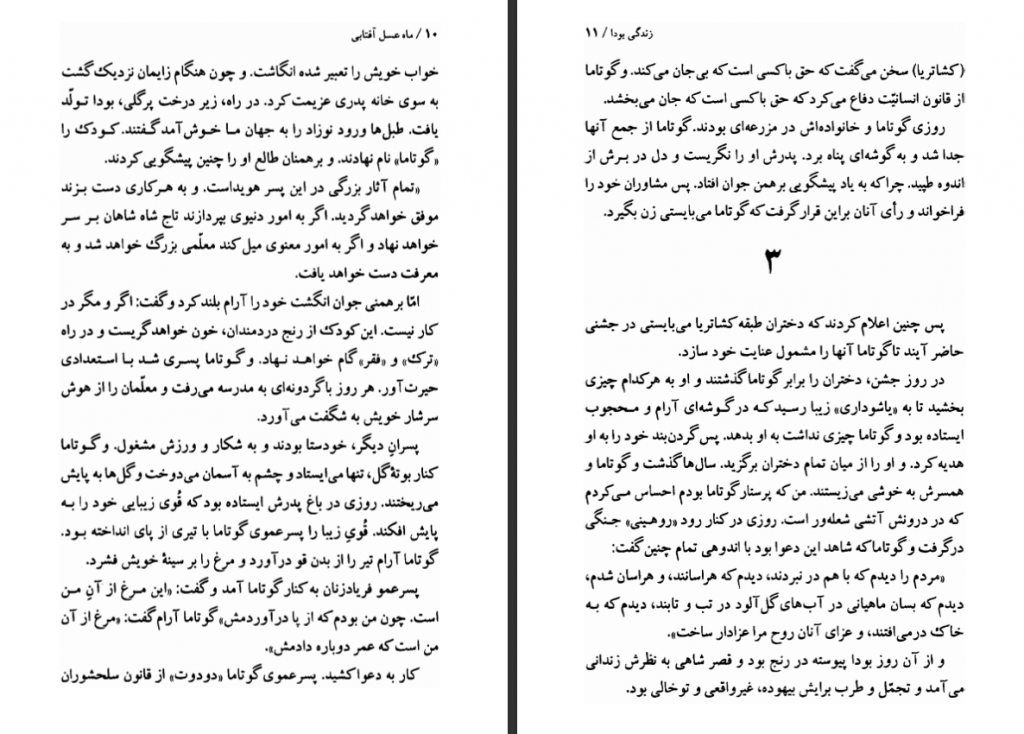 ۱۰ / ماه عسل آفتابی
خواب خویش را تعبیر شده انگاشت. و چون هنگام زایمان نزدیک گشت
به سوی خانه پدری عزیمت کرد. در راه، زیر درخت پرگلی، بودا تولّد
یافت. طبل‌ها ورود نوزاد را به جهان ما خوش‌آمد گفتند. کودک را
«گوتاما» نام نهادند. و برهمنان طالع او را چنین پیشگویی کردند.
«تمام آثار بزرگی در این پسر هویداست. و به هر کاری دست بزند
موفق خواهد گردید. اگر به امور دنیوی بپردازند تاج شاه شاهان بر سر
خواهد نهاد و اگر به امور معنوی میل کند معلّمی بزرگ خواهد شد و به
معرفت دست خواهد یافت.
امّا برهمنی جوان انگشت خود را آرام بلند کرد و گفت: اگر و مگر در
کار نیست. این کودک از رنج دردمندان، خون خواهد گریست و در راه
«ترک» و «فقر» گام خواهد نهاد. و گوتاما پسری شد با استعدادی
حیرت‌آور. هر روز با گردونه‌ای به مدرسه می‌رفت و معلّمان را از هوش
سرشار خویش به شگفت می‌آورد.
پسرانِ دیگر، خودستا بودند و به شکار و ورزش مشغول. و گوتاما
کنار بوتهٔ گل، تنها می‌ایستاد و چشم به آسمان می‌دوخت و گل‌ها به پایش
می‌ریختند. روزی در باغ پدرش ایستاده بود که قُوی زیبایی خود را به
پایش افکند. قُویِ زیبا را پسرعموی گوتاما با تیری از پای انداخته بود.
گوتاما آرام تیر را از بدن قو درآورد و مرغ را بر سینهٔ خویش فشرد.
پسرعمو فریادزنان به کنار گوتاما آمد و گفت: «این مرغ از آنِ من
است. چون من بودم که از پا درآوردمش» گوتاما آرام گفت: «مرغ از آن
من است که عمر دوباره دادمش».
کار به دعوا کشید. پسرعموی گوتاما «دودوت» از قانون سلحشوران
زندگی بودا / ۱۱
(کشاتریا) سخن می‌گفت که حق با کسی است که بی‌جان می‌کند. و گوتاما
از قانون انسانیّت دفاع می‌کرد که حق با کسی است که جان می‌بخشد.
روزی گوتاما و خانواده‌اش در مزرعه‌ای بودند. گوتاما از جمع آنها
جدا شد و به گوشه‌ای پناه برد. پدرش او را نگریست و دل در برش از
اندوه طپید. چرا که به یاد پیشگویی برهمن جوان افتاد. پس مشاوران خود را
فراخواند و رأی آنان براین قرار گرفت که گوتاما می‌بایستی زن بگیرد.
۳
پس چنین اعلام کردند که دختران طبقه کشاتریا می‌بایستی در جشنی
حاضر آیند تا گوتاما آنها را مشمول عنایت خود سازد.
در روز جشن، دختران را برابر گوتاما گذشتند و او به هر کدام چیزی
بخشید تا به «یاشوداری» زیبا رسید که در گوشه‌ای آرام و محجوب
ایستاده بود و گوتاما چیزی نداشت به او بدهد. پس گردن‌بند خود را به او
هدیه کرد. و او را از میان تمام دختران برگزید. سال‌ها گذشت و گوتاما و
همسرش به خوشی می‌زیستند. من که پرستار گوتاما بودم احساس می‌کردم
که در درونش آتشی شعله‌ور است. روزی در کنار رود «روهینی» جنگی
درگرفت و گوتاما که شاهد این دعوا بود با اندوهی تمام چنین گفت:
«مردم را دیدم که با هم در نبردند، دیدم که هراسانند، و هراسان شدم،
دیدم که بسان ماهیانی در آب‌های گل‌آلود در تب و تابند، دیدم که به
خاک درمی‌افتند، و عزای آنان روح مرا عزادار ساخت».
و از آن روز بودا پیوسته در رنج بود و قصر شاهی به نظرش زندانی
می‌آمد و تجمّل و طرب برایش بیهوده، غیرواقعی و توخالی بود.